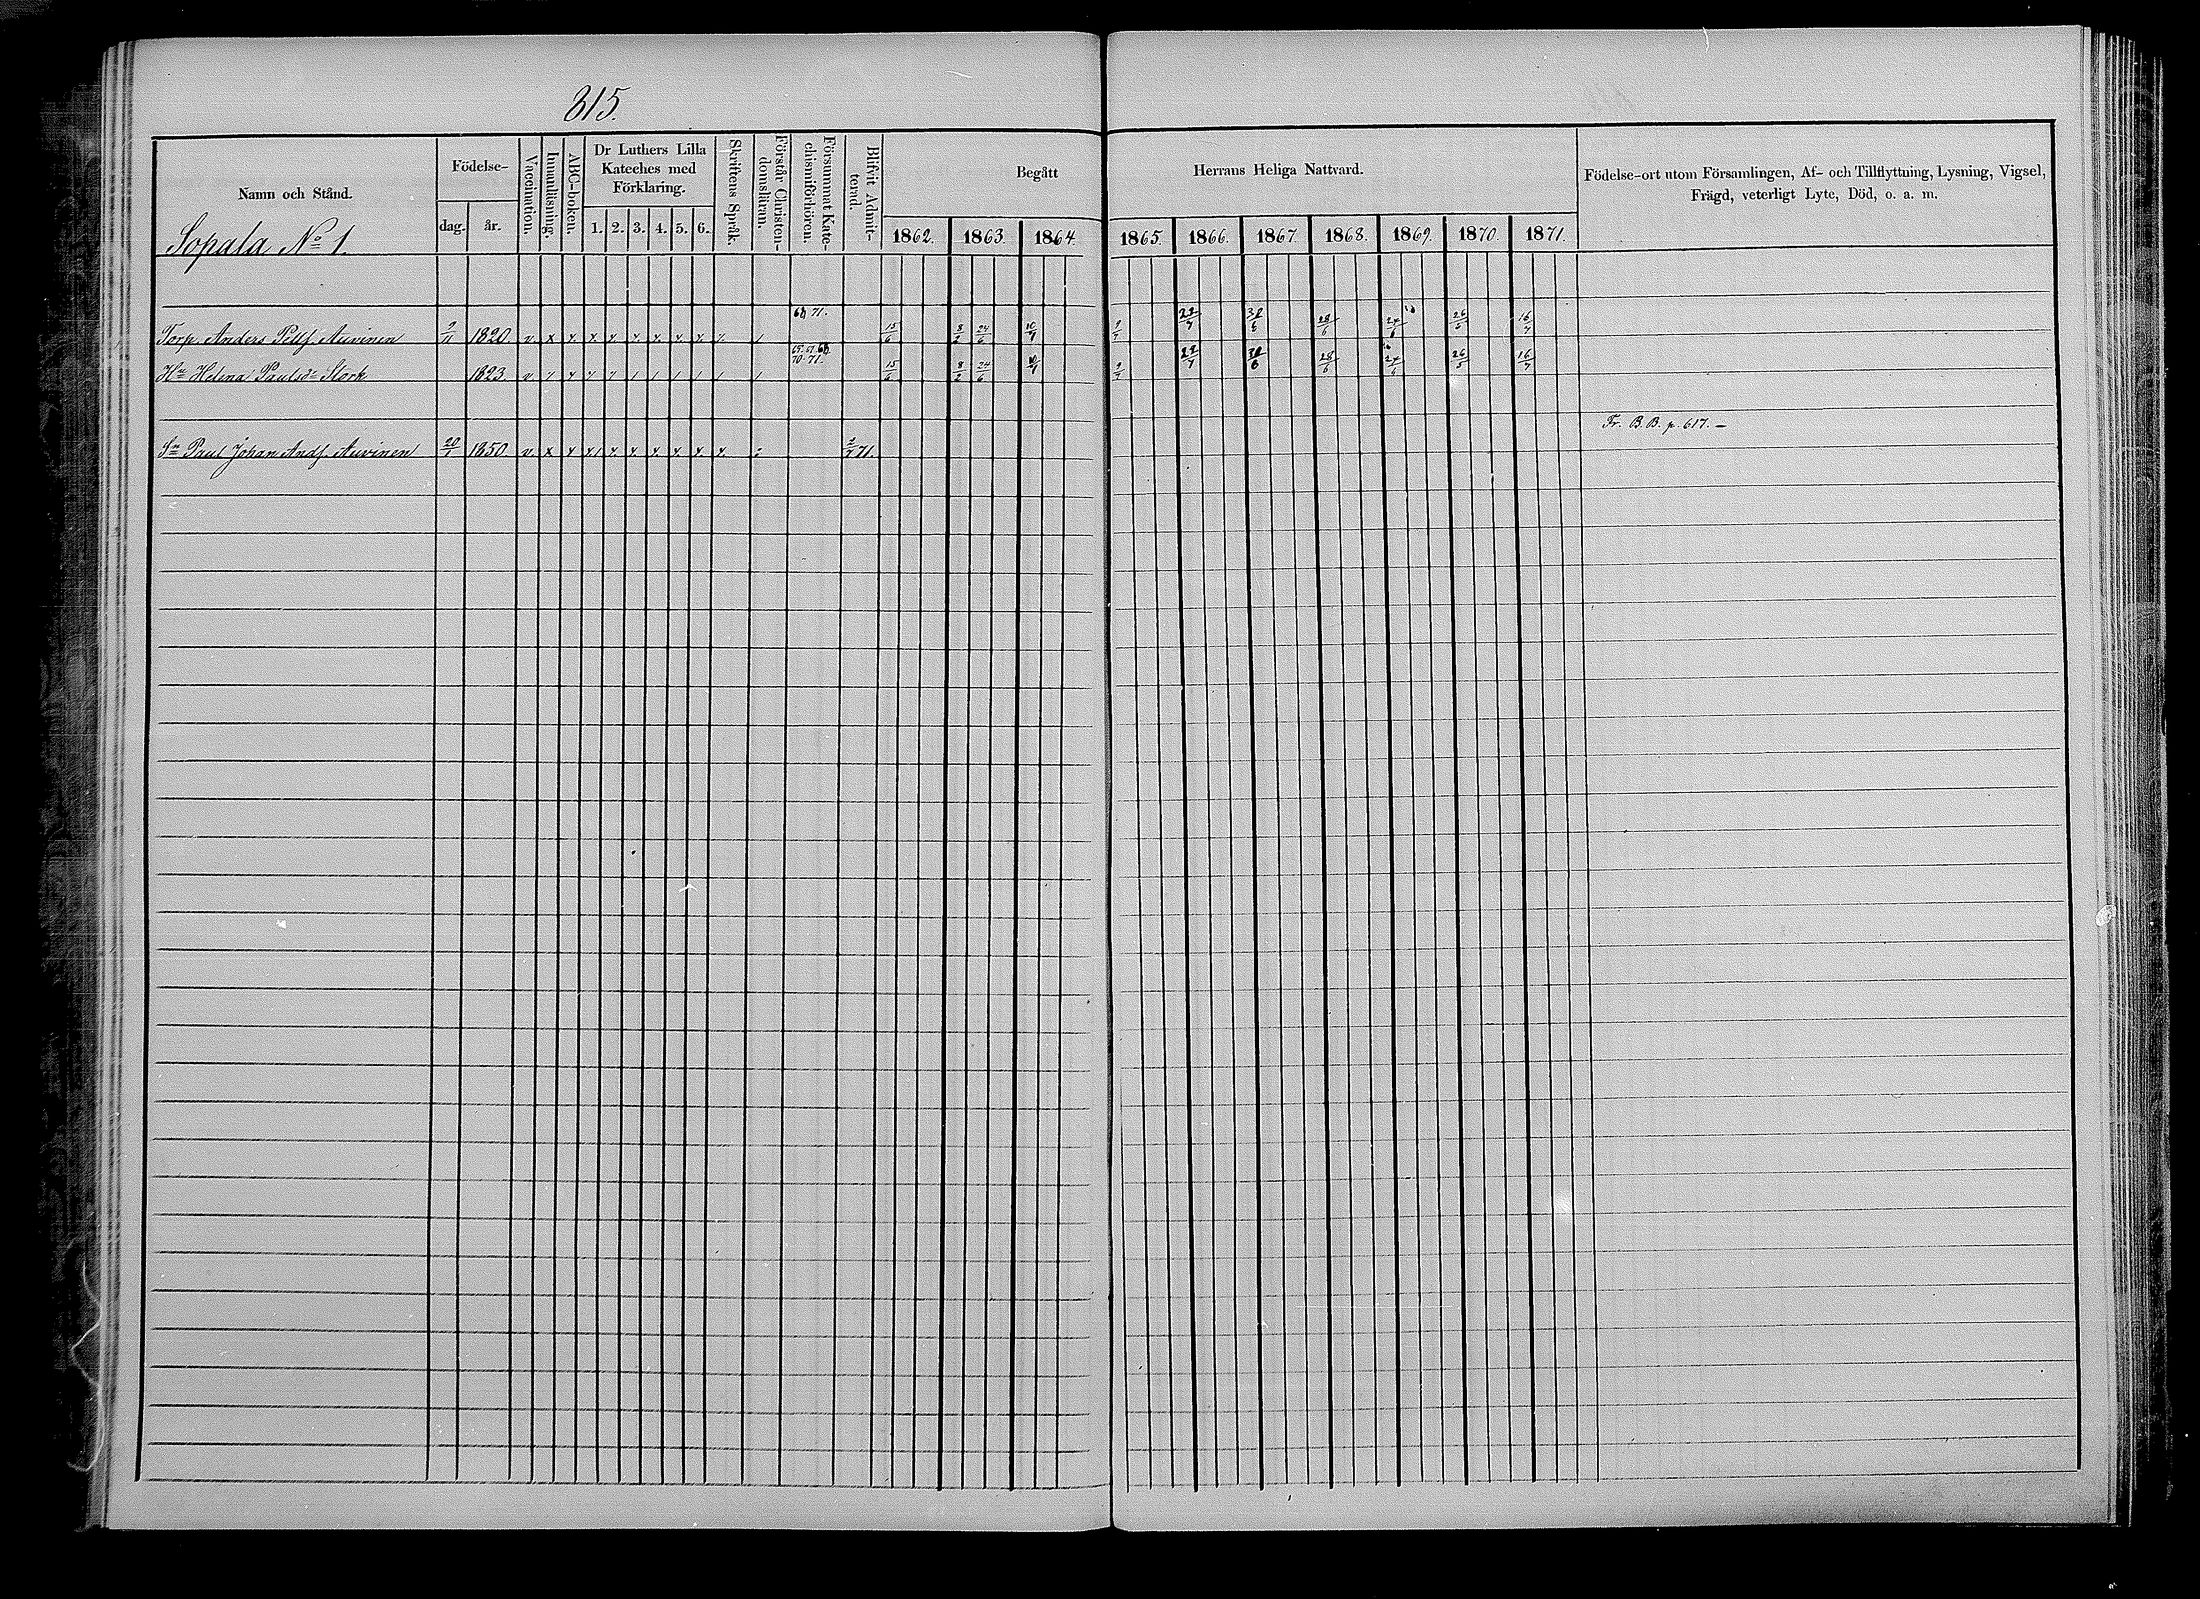 815.
Namn och Stånd.
Födelse-
dag. år.
Vaccination.
Innanläsning.
ABC-boken.
Dr Luthers Lilla
Kateches med
Förklaring.
1. 2. 3. 4. 5. 6.
Skriftens Språk.
Förstår Christen-
domsläran.
Försummat Kate-
chismiförhören.
Blifvit Admit-
terad.
Begått
Herrans Heliga Nattvard.
1862. 1863. 1864. 1865. 1866. 1867. 1868. 1869. 1870. 1871.
Födelse-ort utom Församlingen, Af- och Tillflyttning, Lysning, Vigsel,
Frägd, veterligt Lyte, Död, o. a. m.
Sopala No 1.
71.
Torp. Anders Auvinen 1820. v. x 15/6 8/2 24/6 22/7 28/6 24/6 26/5 16/7
70. 71.
Hu Helena Paulsdr Stork 1823. v. 15/6 8/2 24/6 22/7 28/6 24/6 26/5 16/7
Fr. B. B. p. 617. –
Sn Paul Johan Andf. Auvinen 1850. v. x 71.